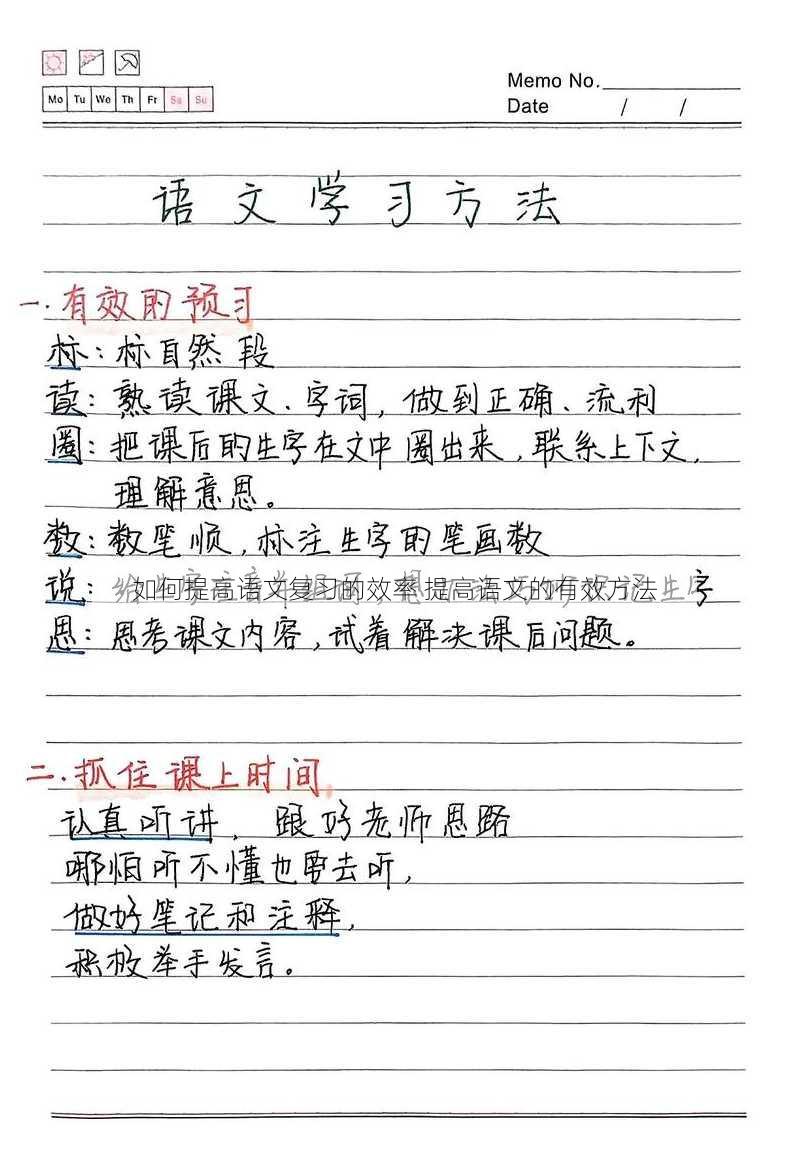 Memo No.
Mo Tu We Th Fr Sa Su
Date / /
语文学习方法
一.有效的预习
标:标自然段
读:熟读课文、字词,做到正确、流利
圈:把课后的生字在文中圈出来,联系上下文,
理解意思。
数:数笔顺,标注生字的笔画数
说: 字
如何提高语文复习的效率 提高语文的有效方法
思:思考课文内容,试着解决课后问题。
二.抓住课上时间
认真听讲, 跟好老师思路
哪怕听不懂也要去听,
做好笔记和注释,
积极举手发言。